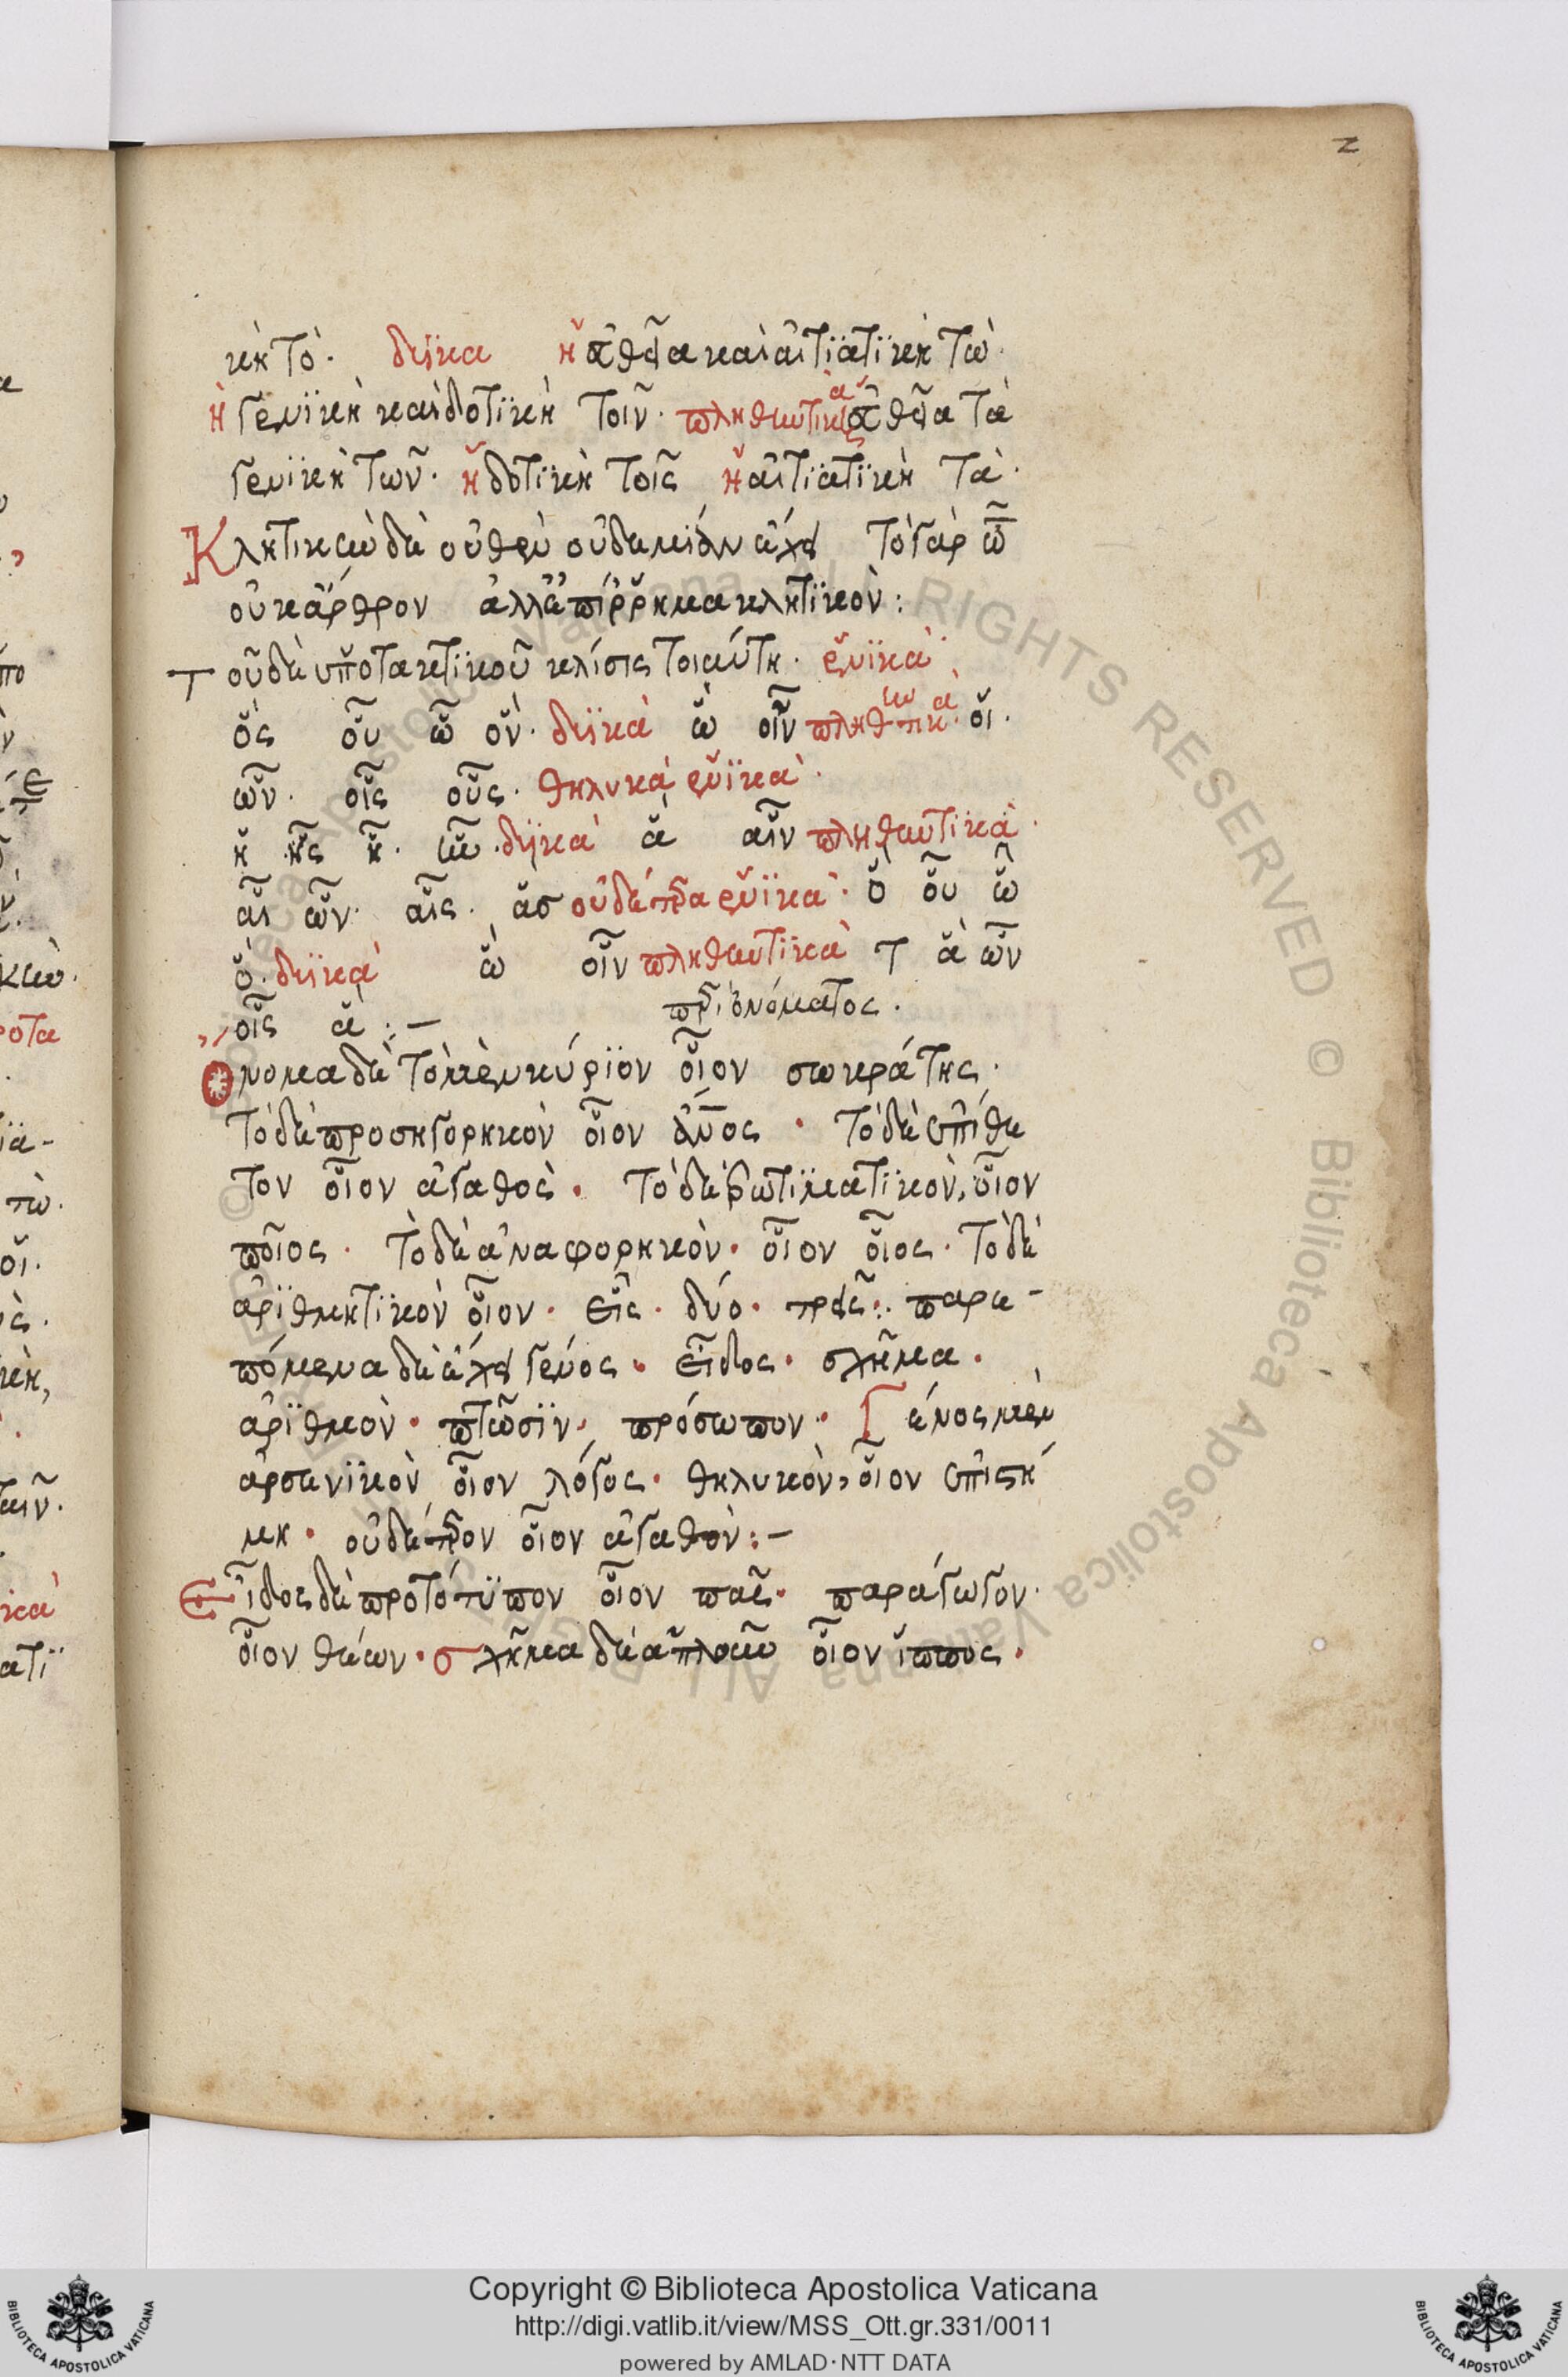 2
κὴ τὸ· δυϊκα ἡ ὀρθὴ καὶ αἰτιατϊκὴ τὼ·
ἡ γενϊκὴ καὶ δοτϊκὴ τοῖν· πληθυντικὰ ἡ ὀρθὴ τὰ
γενϊκὴ τῶν· ἡ δοτϊκὴ τοῖς ἡ αἰτϊατϊκὴ τὰ·
Κλητικὴν δὲ οὐδὲν οὐδεμίαν ἔχει τὸ γὰρ ὦ
οὐκ ἄρθρον ἀλλ' ἐπίρρημα κλητϊκὸν:
τοῦ δὲ ὑποτακτϊκοῦ κλίσις τοιαύτη· ἑνϊκὰ
ὃς οὗ ᾧ ὃν· δυϊκὰ ὣ οἷν πληθυντικὰ· οἵ·
ὧν· οἷς οὓς· θηλυκὰ ἑνϊκὰ·
ἣ ἧς ᾗ· ἣν· δυϊκὰ ἃ αἷν πληθυντϊκὰ·
αἷ ὧν· αἷς· ἃσ οὐδέτερα ἑνϊκὰ· ὃ οὗ ᾧ
ὃ· δυϊκὰ ὣ οἷν πληθυντϊκὰ τ ἃ ὧν
οἷς ἃ :— περὶ ὀνόματος·
Ονομα δὲ τὸ μὲν κύρϊον οἷον σωκράτης·
Τὸ δὲ προσηγορηκὸν οἷον ἄνος· Τὸ δὲ ἐπίθε
τον οἷον ἀγαθὸς· Τὸ δὲ ἐρωτϊματϊκὸν, οἷον
ποῖος· Τὸ δὲ ἀναφορηκὸν· οἷον οἷος· Τὸ δὲ
ἀρϊθμητϊκὸν οἷον· εἷς· δύο· τρεῖς:· παρε-
πόμενα δὲ ἔχει γένος· εἶδος· σχῆμα·
ἀρϊθμὸν· πτῶσϊν, πρόσωπον· Γένος μὲν
ἀρσενϊκὸν οἷον λόγος· θηλυκὸν, οἷον ἐπιστή
μη· οὐδέτερον οἷον ἀγαθὸν:—
Εἶδος δὲ προτότϋπον οἷον παῖς· παράγωγον·
οἷον θέων· σχῆμα δὲ ἁπλοῦν οἷον ἵππος·
Copyright © Biblioteca Apostolica Vaticana
http://digi.vatlib.it/view/MSS_Ott.gr.331/0011
powered by AMLAD·NTT DATA
BIBLIOTECA APOSTOLICA VATICANA
BIBLIOTECA APOSTOLICA VATICANA